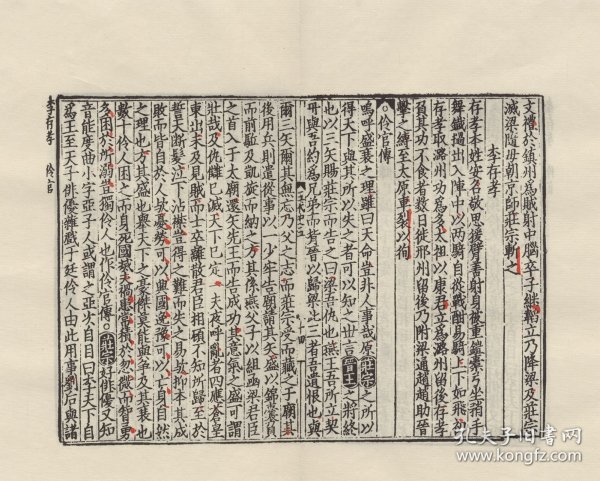 文禮於鎮州為賊射中腦卒子繼韜立乃降梁及莊宗
滅梁隨母朝京師莊宗斬之
李存孝
存孝本姓安名敬思猨臂善射身被重鎧櫜弓坐矟手
舞鐵檛出入陣中以兩騎自從戰酣易騎上下如飛初
存孝取潞州功為多太祖以康君立為潞州留後存孝
負其功不食者數日徙邢州留後乃附梁通趙趙助晉
擊之縛至太原車裂以徇
伶官傳
嗚呼盛衰之理雖曰天命豈非人事哉原莊宗之所以
得天下與其所以失之者可以知之世言晉王之將終
也以三矢賜莊宗而告之曰梁吾仇也燕王吾所立契
丹與吾約為兄弟而背晉以歸梁此三者吾遺恨也與
五代史三 十四
爾三矢爾其無忘乃父之志而莊宗受而藏之于廟其
後用兵則遣從事以一少牢告廟請其矢盛以錦囊負
而前驅及凱旋而納之方其係燕父子以組函梁君臣
之首入于太廟還矢先王而告成功其意氣之盛可謂
壯哉及仇讎已滅天下已定一夫夜呼亂者四應蒼皇
東出未及見賊而士卒離散君臣相顧不知所歸至於
誓天斷髮泣下沾襟豈得之難而失之易歟抑本其成
敗而皆自於人歟憂勞可以興國逸豫可以亡身自然
之理也方其盛也舉天下之豪傑莫能與爭及其衰也
數十伶人困之而身死國滅夫禍患常積於忽微而智勇
多困於所溺豈獨伶人也作伶官傳。莊宗好俳優又知
音能度曲小字亞子人或謂之亞次自目曰李天下自
為王至天子俳優雜戲于廷伶人由此用事劉后與諸
李存孝 伶官
孔夫子旧书网
www.kongfz.com